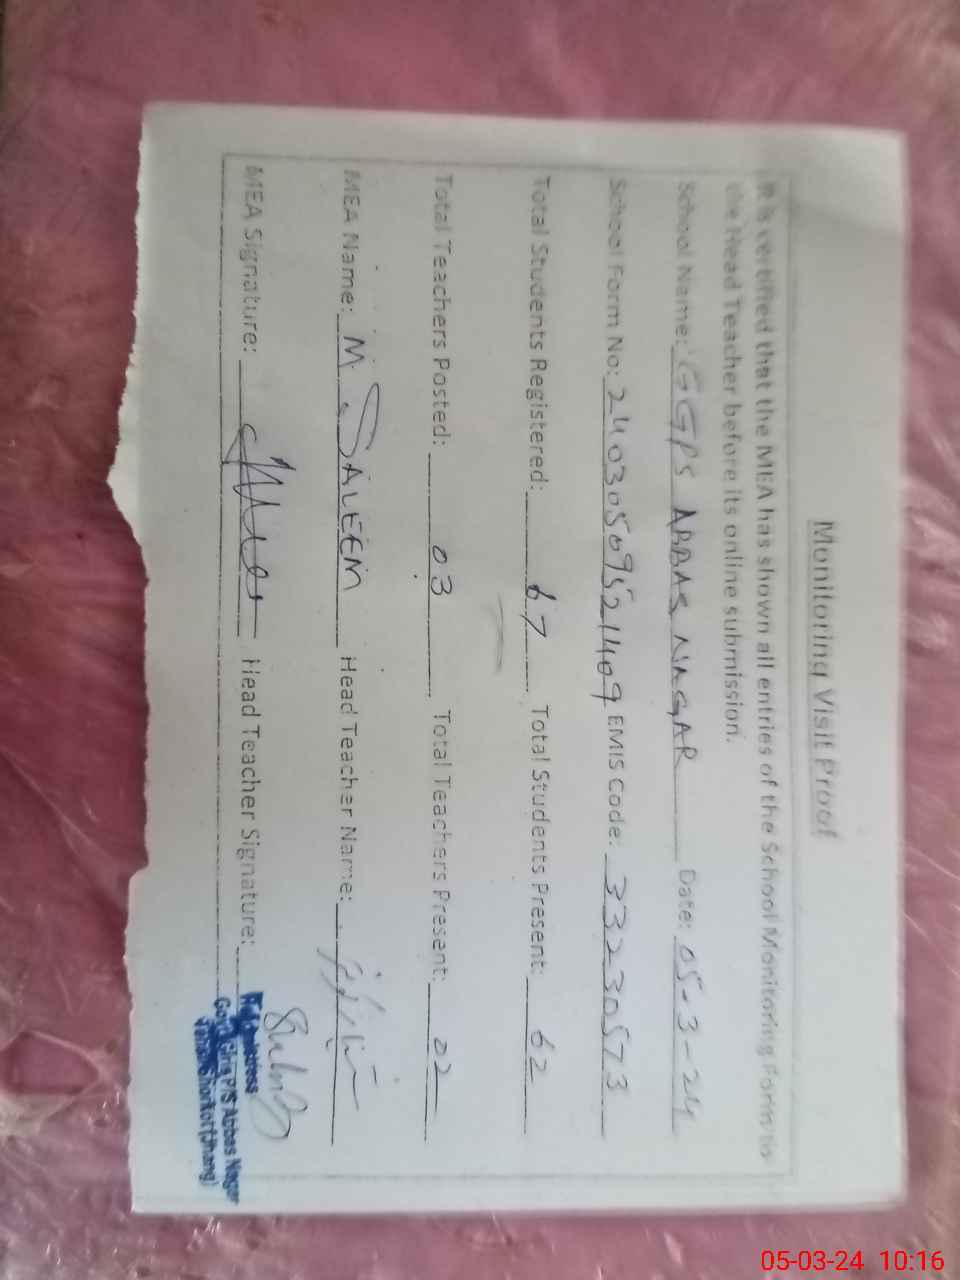 Monitoring Visit Proof
It is certified that the MEA has shown all entries of the School Monitoring Form to
the Head Teacher before its online submission.
School Name: GGPS ABBAS NAGAR Date: 05-3-24
School Form No: 24030509521409 EMIS Code: 33230573
Total Students Registered: 67 Total Students Present: 62
Total Teachers Posted: 03 Total Teachers Present: 02
MEA Name: M. SALEEM Head Teacher Name:
MEA Signature: Head Teacher Signature:
Headmistress
Govt. Girls P/S Abbas Nagar
Tehsil Shorkot (Jhang)
05-03-24 10:16